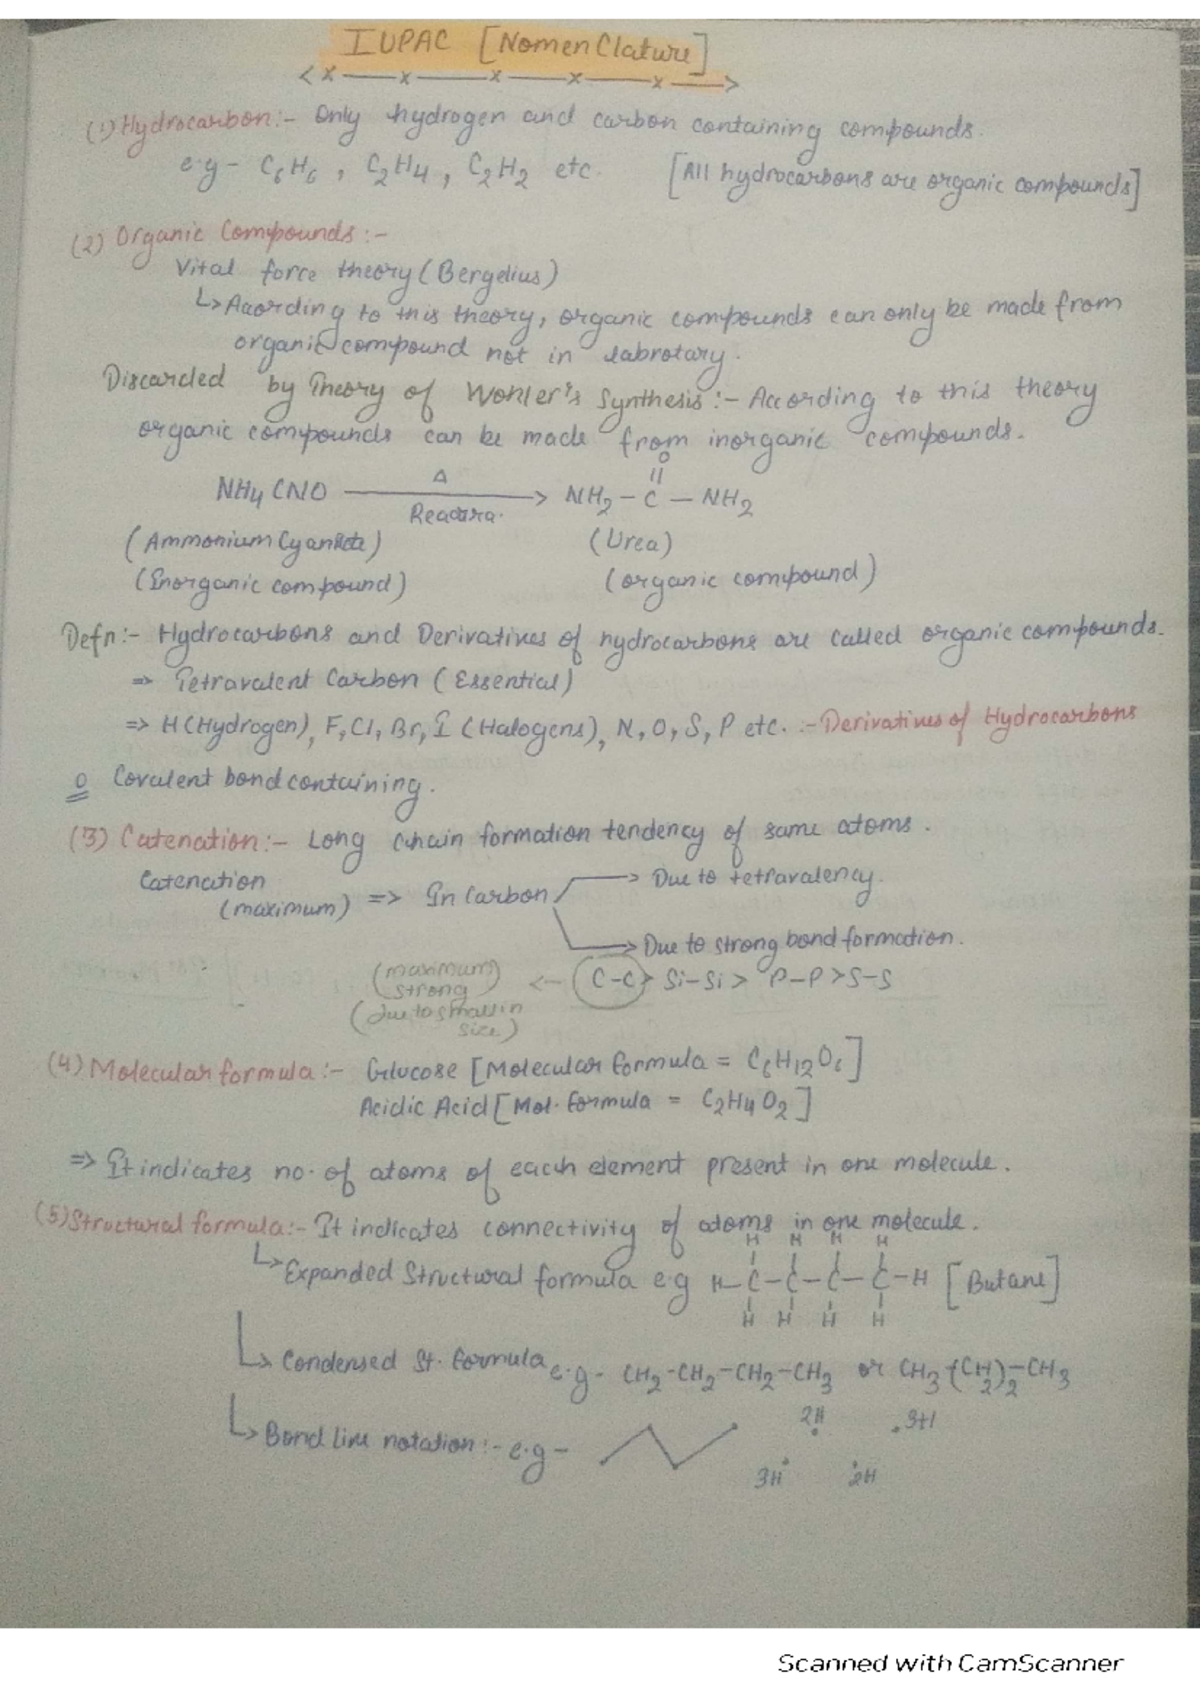 IUPAC [NomenClature]
(1) Hydrocarbon:- Only hydrogen and carbon containing compounds.
e.g - C6H6, C2H4, C2H2 etc. [All hydrocarbons are organic compounds]
(2) Organic Compounds:-
Vital force theory (Bergelius)
↳ Acording to this theory, organic compounds can only be made from
organic compound not in labrotary.
Discarded by Theory of Wohler's Synthesis:- According to this theory
organic compounds can be made from inorganic compounds.
O
NH4 CNO —Δ→ NH2 - C - NH2
(Ammonium Cyanate) (Urea)
(Inorganic compound) (organic compound)
Defn:- Hydrocarbons and Derivatives of hydrocarbons are called organic compounds.
⇒ Tetravalent Carbon (Essential)
⇒ H (Hydrogen), F, Cl, Br, I (Halogens), N, O, S, P etc. :- Derivatives of Hydrocarbons
Covalent bond containing.
(3) Catenation:- Long chain formation tendency of same atoms.
Catenation
(maximum) ⇒ In Carbon → Due to tetravalency.
→ Due to strong bond formation.
(maximum strong) ← C-C > Si-Si > P-P > S-S
(due to small in size)
(4) Molecular formula:- Glucose [Molecular formula = C6H12O6]
Acidic Acid [Mol. formula = C2H4O2]
⇒ It indicates no. of atoms of each element present in one molecule.
(5) Structural formula:- It indicates connectivity of atoms in one molecule.
H H H H
↳ Expanded Structural formula e.g H-C-C-C-C-H [Butane]
H H H H
↳ Condensed St. formula e.g - CH2-CH2-CH2-CH3 or CH3-(CH2)2-CH3
↳ Bond line notation:- e.g - 2H 3H
3H 2H
Scanned with CamScanner